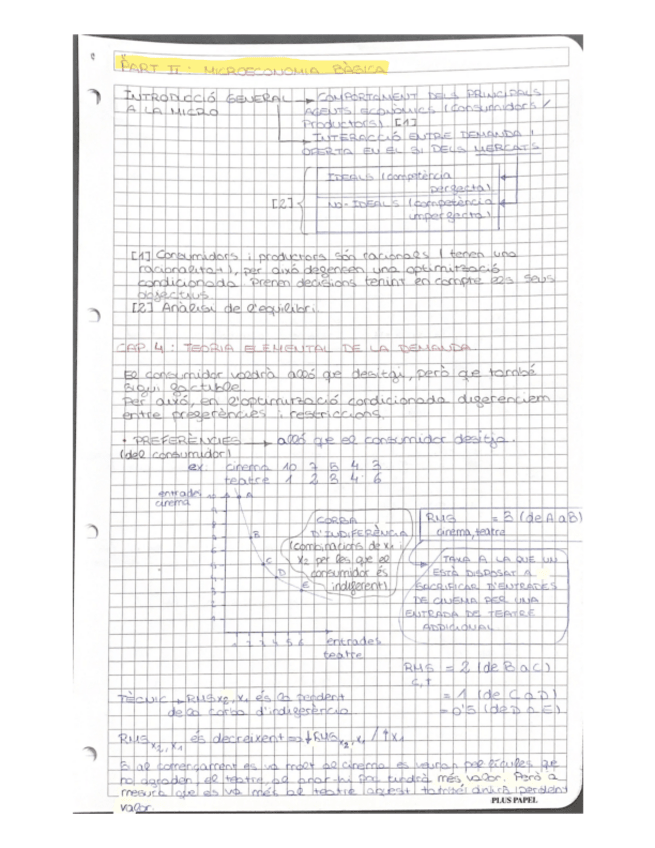 PART II: MICROECONOMIA BÀSICA
INTRODUCCIÓ GENERAL → COMPORTAMENT DELS PRINCIPALS
A LA MICRO AGENTS ECONÒMICS (consumidors /
Productors) [1]
→ INTERACCIÓ ENTRE DEMANDA I
OFERTA EN EL SI DELS MERCATS
IDEALS (competència
perfecta)
[2] NO-IDEALS (competència
imperfecta)
[1] Consumidors i productors són racionals (tenen una
racionalitat), per això defensen una optimització
condicionada. Prenen decisions tenint en compte els seus
objectius.
[2] Anàlisi de l'equilibri.
CAP 4: TEORIA ELEMENTAL DE LA DEMANDA
El consumidor voldrà allò que desitgi, però que també
sigui factible.
Per això, en l'optimització condicionada diferenciem
entre preferències i restriccions.
• PREFERÈNCIES → allò que el consumidor desitja.
(del consumidor)
ex cinema 10 7 5 4 3
teatre 1 2 3 4 6
entrades
cinema
A
B
C
D
E
1 2 3 4 5 6 entrades
teatre
CORBA
D'INDIFERÈNCIA
(combinacions de x1 i
x2 per les que el
consumidor és
indiferent)
RMS = 3 (de A a B)
cinema, teatre
TAXA A LA QUE UN
ESTÀ DISPOSAT A
SACRIFICAR D'ENTRADES
DE CINEMA PER UNA
ENTRADA DE TEATRE
ADDICIONAL
RMS = 2 (de B a C)
C,T
= 1 (de C a D)
= 0'5 (de D a E)
TÈCNIC → RMS x2, x1 és la pendent
de la corba d'indiferència
RMS x2, x1 és decreixent => ↓RMS x2, x1 / ↑x1
Si al començament es va molt al cinema es veuran pel·lícules que
no agraden, el teatre, al anar-hi poc tindrà més valor. Però a
mesura que es va més al teatre aquest també anirà perdent
valor.
PLUS PAPEL